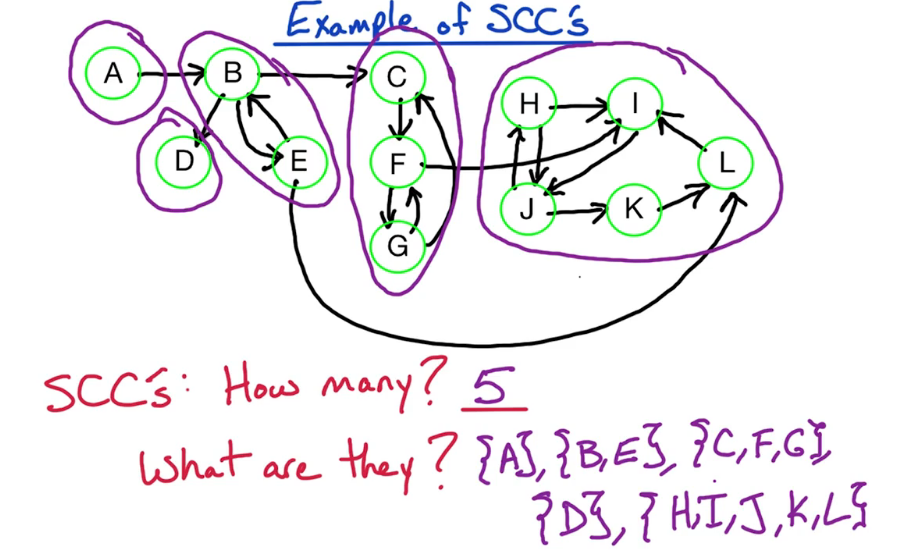 Example of SCC's
A
B
C
D
E
F
G
H
I
J
K
L
SCC's: How many? 5
What are they? {A}, {B,E}, {C,F,G},
{D}, {H,I,J,K,L}